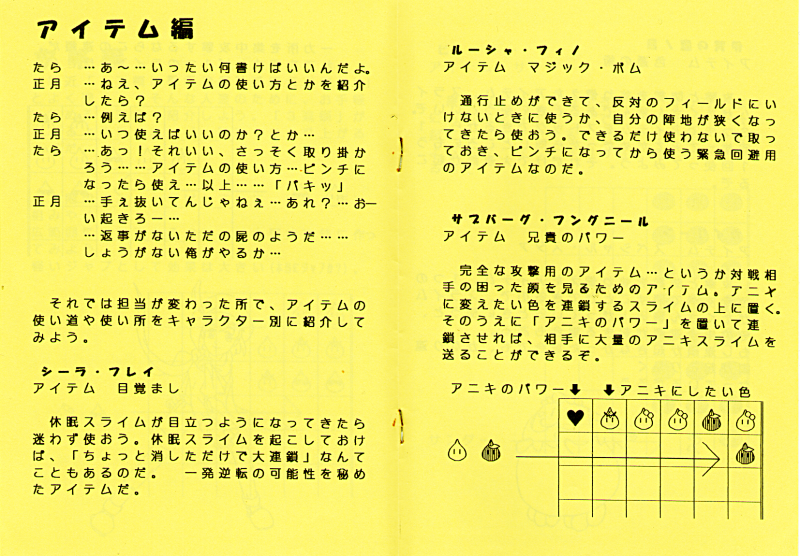 アイテム編
たら　…あ～…いったい何書けばいいんだよ。
正月　…ねえ、アイテムの使い方とかを紹介
したら？
たら　…例えば？
正月　…いつ使えばいいのか？とか…
たら　…あっ！それいい、さっそく取り掛か
ろう……アイテムの使い方…ピンチに
なったら使え…以上……「バキッ」
正月　…手ぇ抜いてんじゃねぇ…あれ？…おー
い起きろー…
…返事がないただの屍のようだ……
しょうがない俺がやるか…
それでは担当が変わった所で、アイテムの
使い道や使い所をキャラクター別に紹介して
みよう。
シーラ・フレイ
アイテム　目覚まし
休眠スライムが目立つようになってきたら
迷わず使おう。休眠スライムを起こしておけ
ば、「ちょっと消しただけで大連鎖」なんて
こともあるのだ。　一発逆転の可能性を秘め
たアイテムだ。
ルーシャ・フィノ
アイテム　マジック・ボム
通行止めができて、反対のフィールドにい
けないときに使うか、自分の陣地が狭くなっ
てきたら使おう。できるだけ使わないで取っ
ておき、ピンチになってから使う緊急回避用
のアイテムなのだ。
サブバーグ・フングニール
アイテム　兄貴のパワー
完全な攻撃用のアイテム…というか対戦相
手の困った顔を見るためのアイテム。アニキ
に変えたい色を連鎖するスライムの上に置く。
そのうえに「アニキのパワー」を置いて連
鎖させれば、相手に大量のアニキスライムを
送ることができるぞ。
アニキのパワー⬇　⬇アニキにしたい色